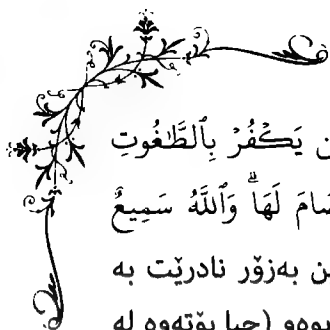 يَكْفُرْ بِٱلطَّـٰغُوتِ
لَهَا ۗ وَٱللَّهُ سَمِيعٌ
بەزۆر نادرێت بە
(جیا بۆتەوە لە